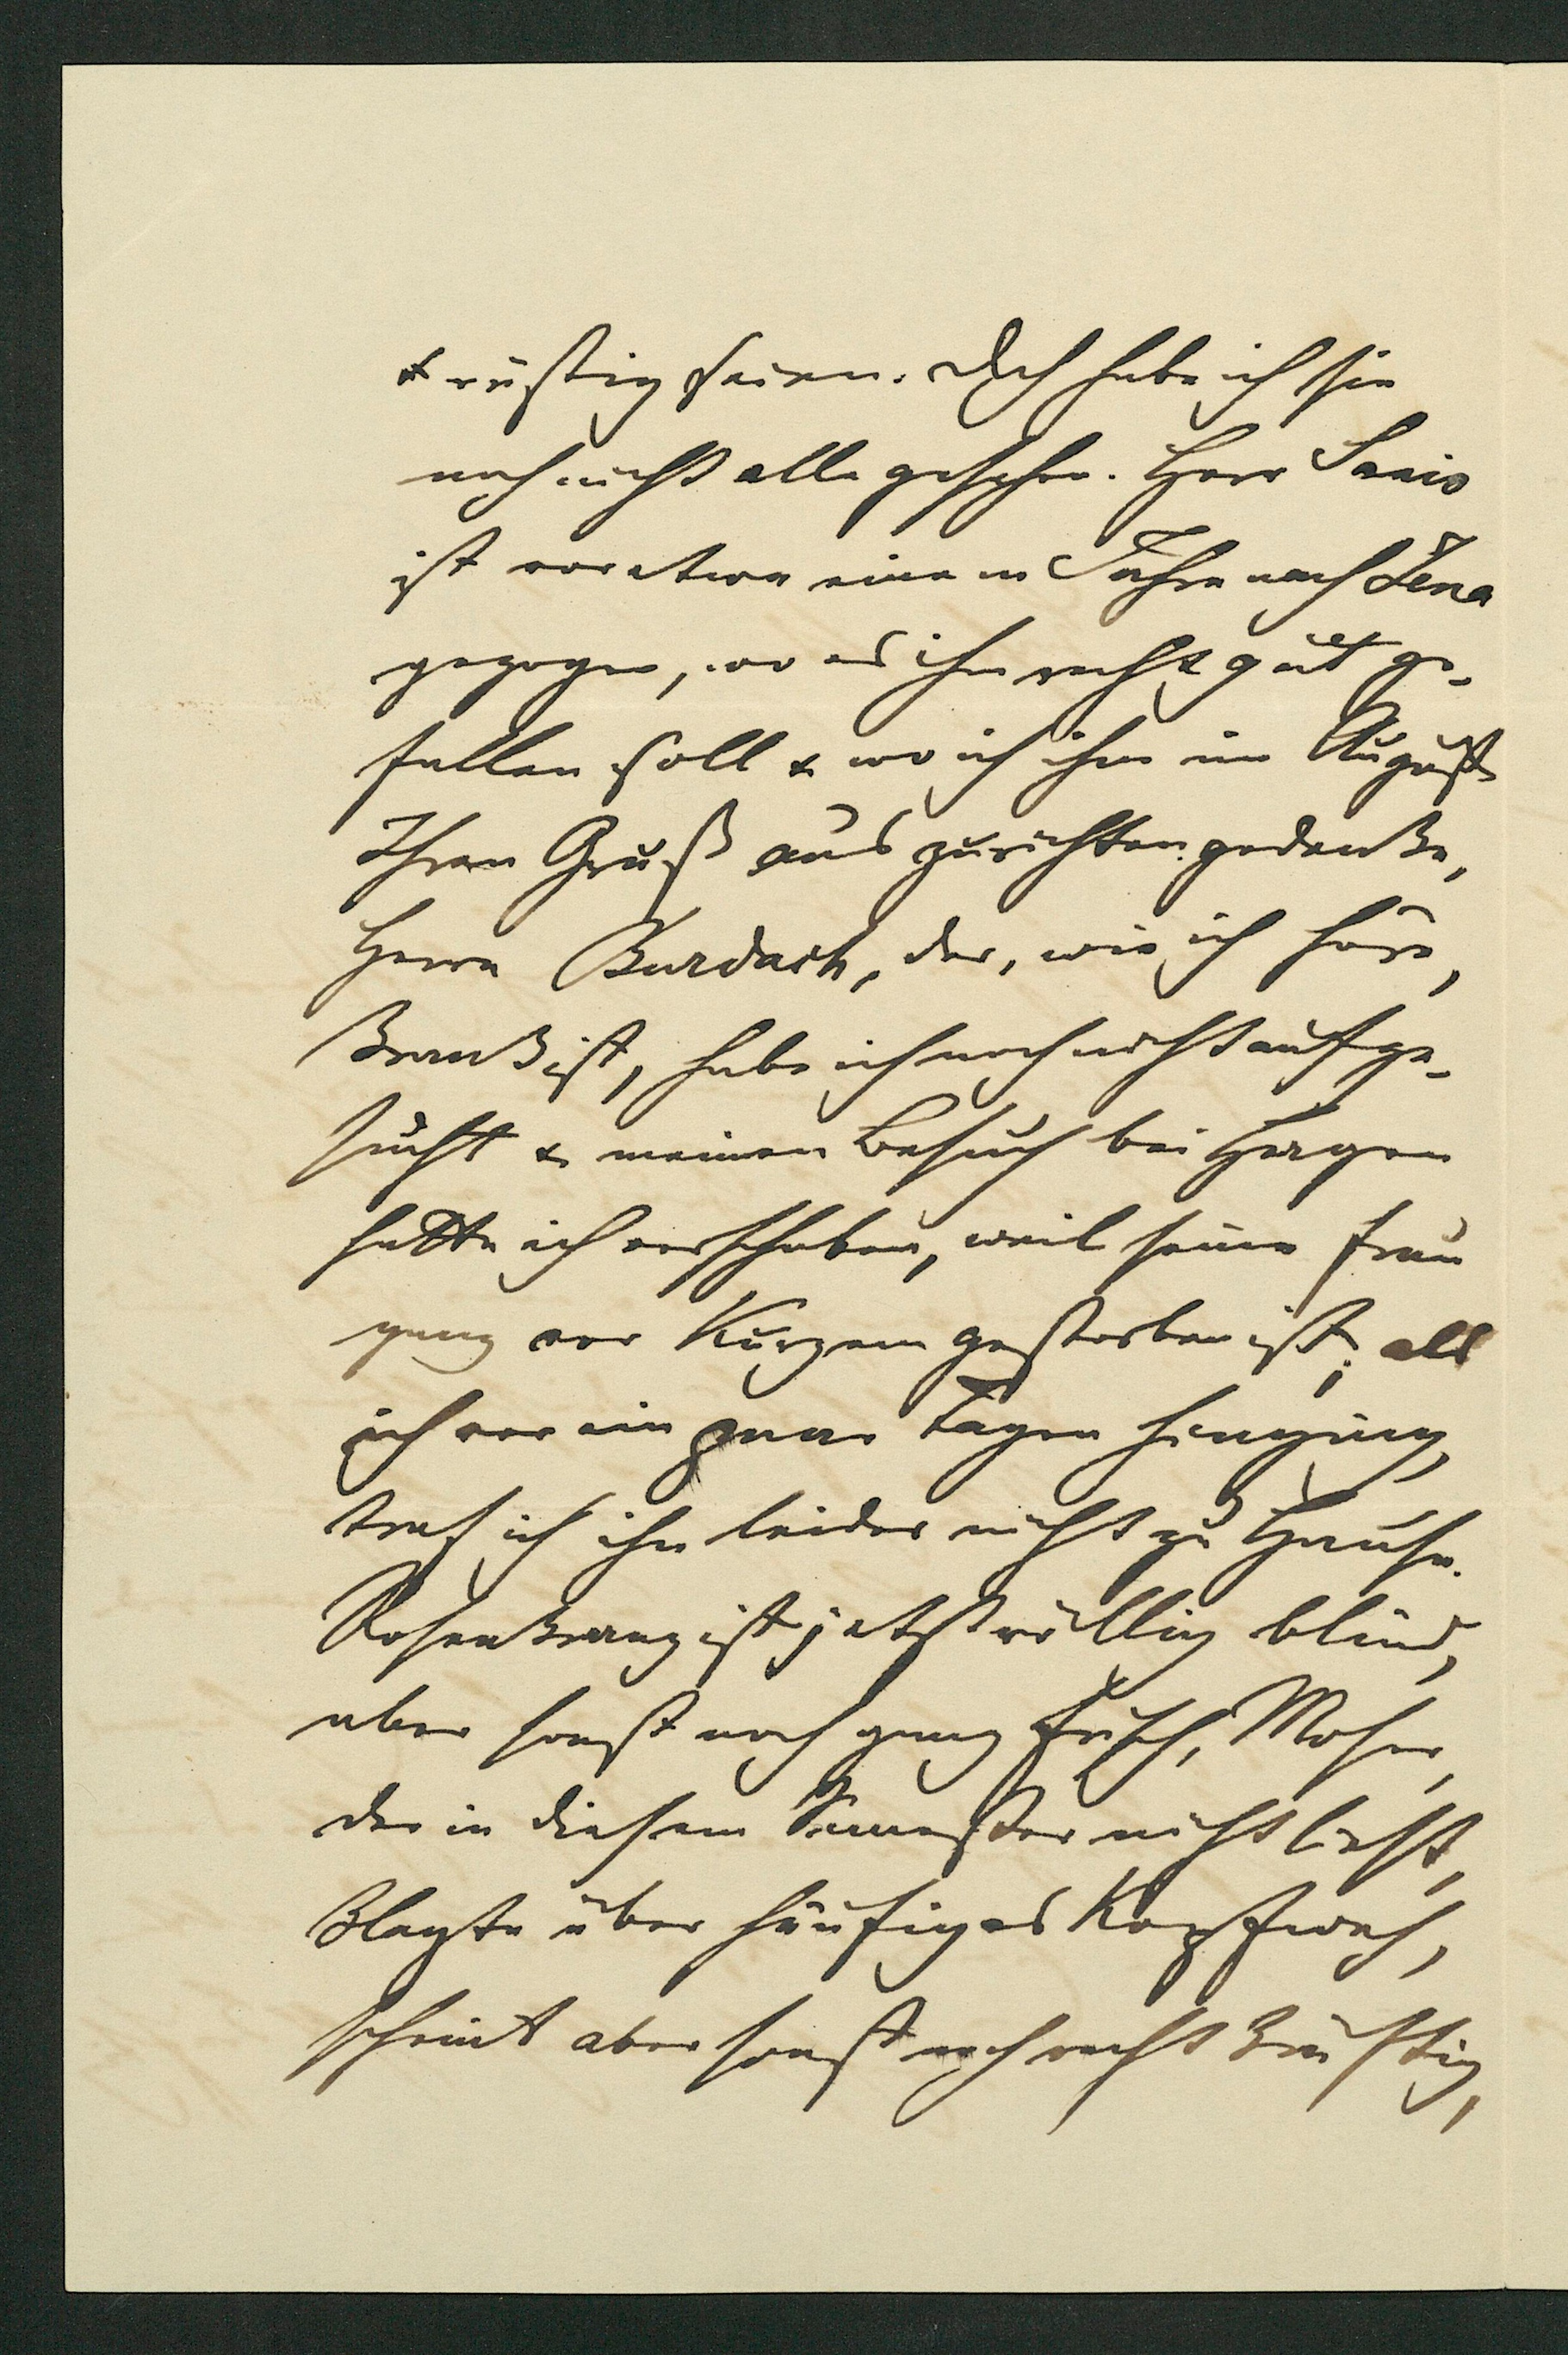 & rüstig seien. Doch habe ich sie
noch nicht alle gesehen. Herr Sanio
ist vor etwa einem Jahre nach Jena
gezogen, wo es ihm recht gut ge-
fallen soll & wo ich ihm im August
Ihren Gruß auszurichten gedenke,
Herrn Burdach, der, wie ich höre,
krank ist, habe ich noch nicht aufge-
sucht & meinen Besuch bei Hagen
hatte ich verschoben, weil seine Frau
ganz vor Kurzem gestorben ist; als
ich vor ein paar Tagen hinging,
traf ich ihn leider nicht zu Hause.
Rosenkranz ist jetzt völlig blind,
aber sonst noch ganz frisch, Moser,
der in diesem Semester nicht liest,
klagte über häufiges Kopfweh,
scheint aber sonst noch recht kräftig,